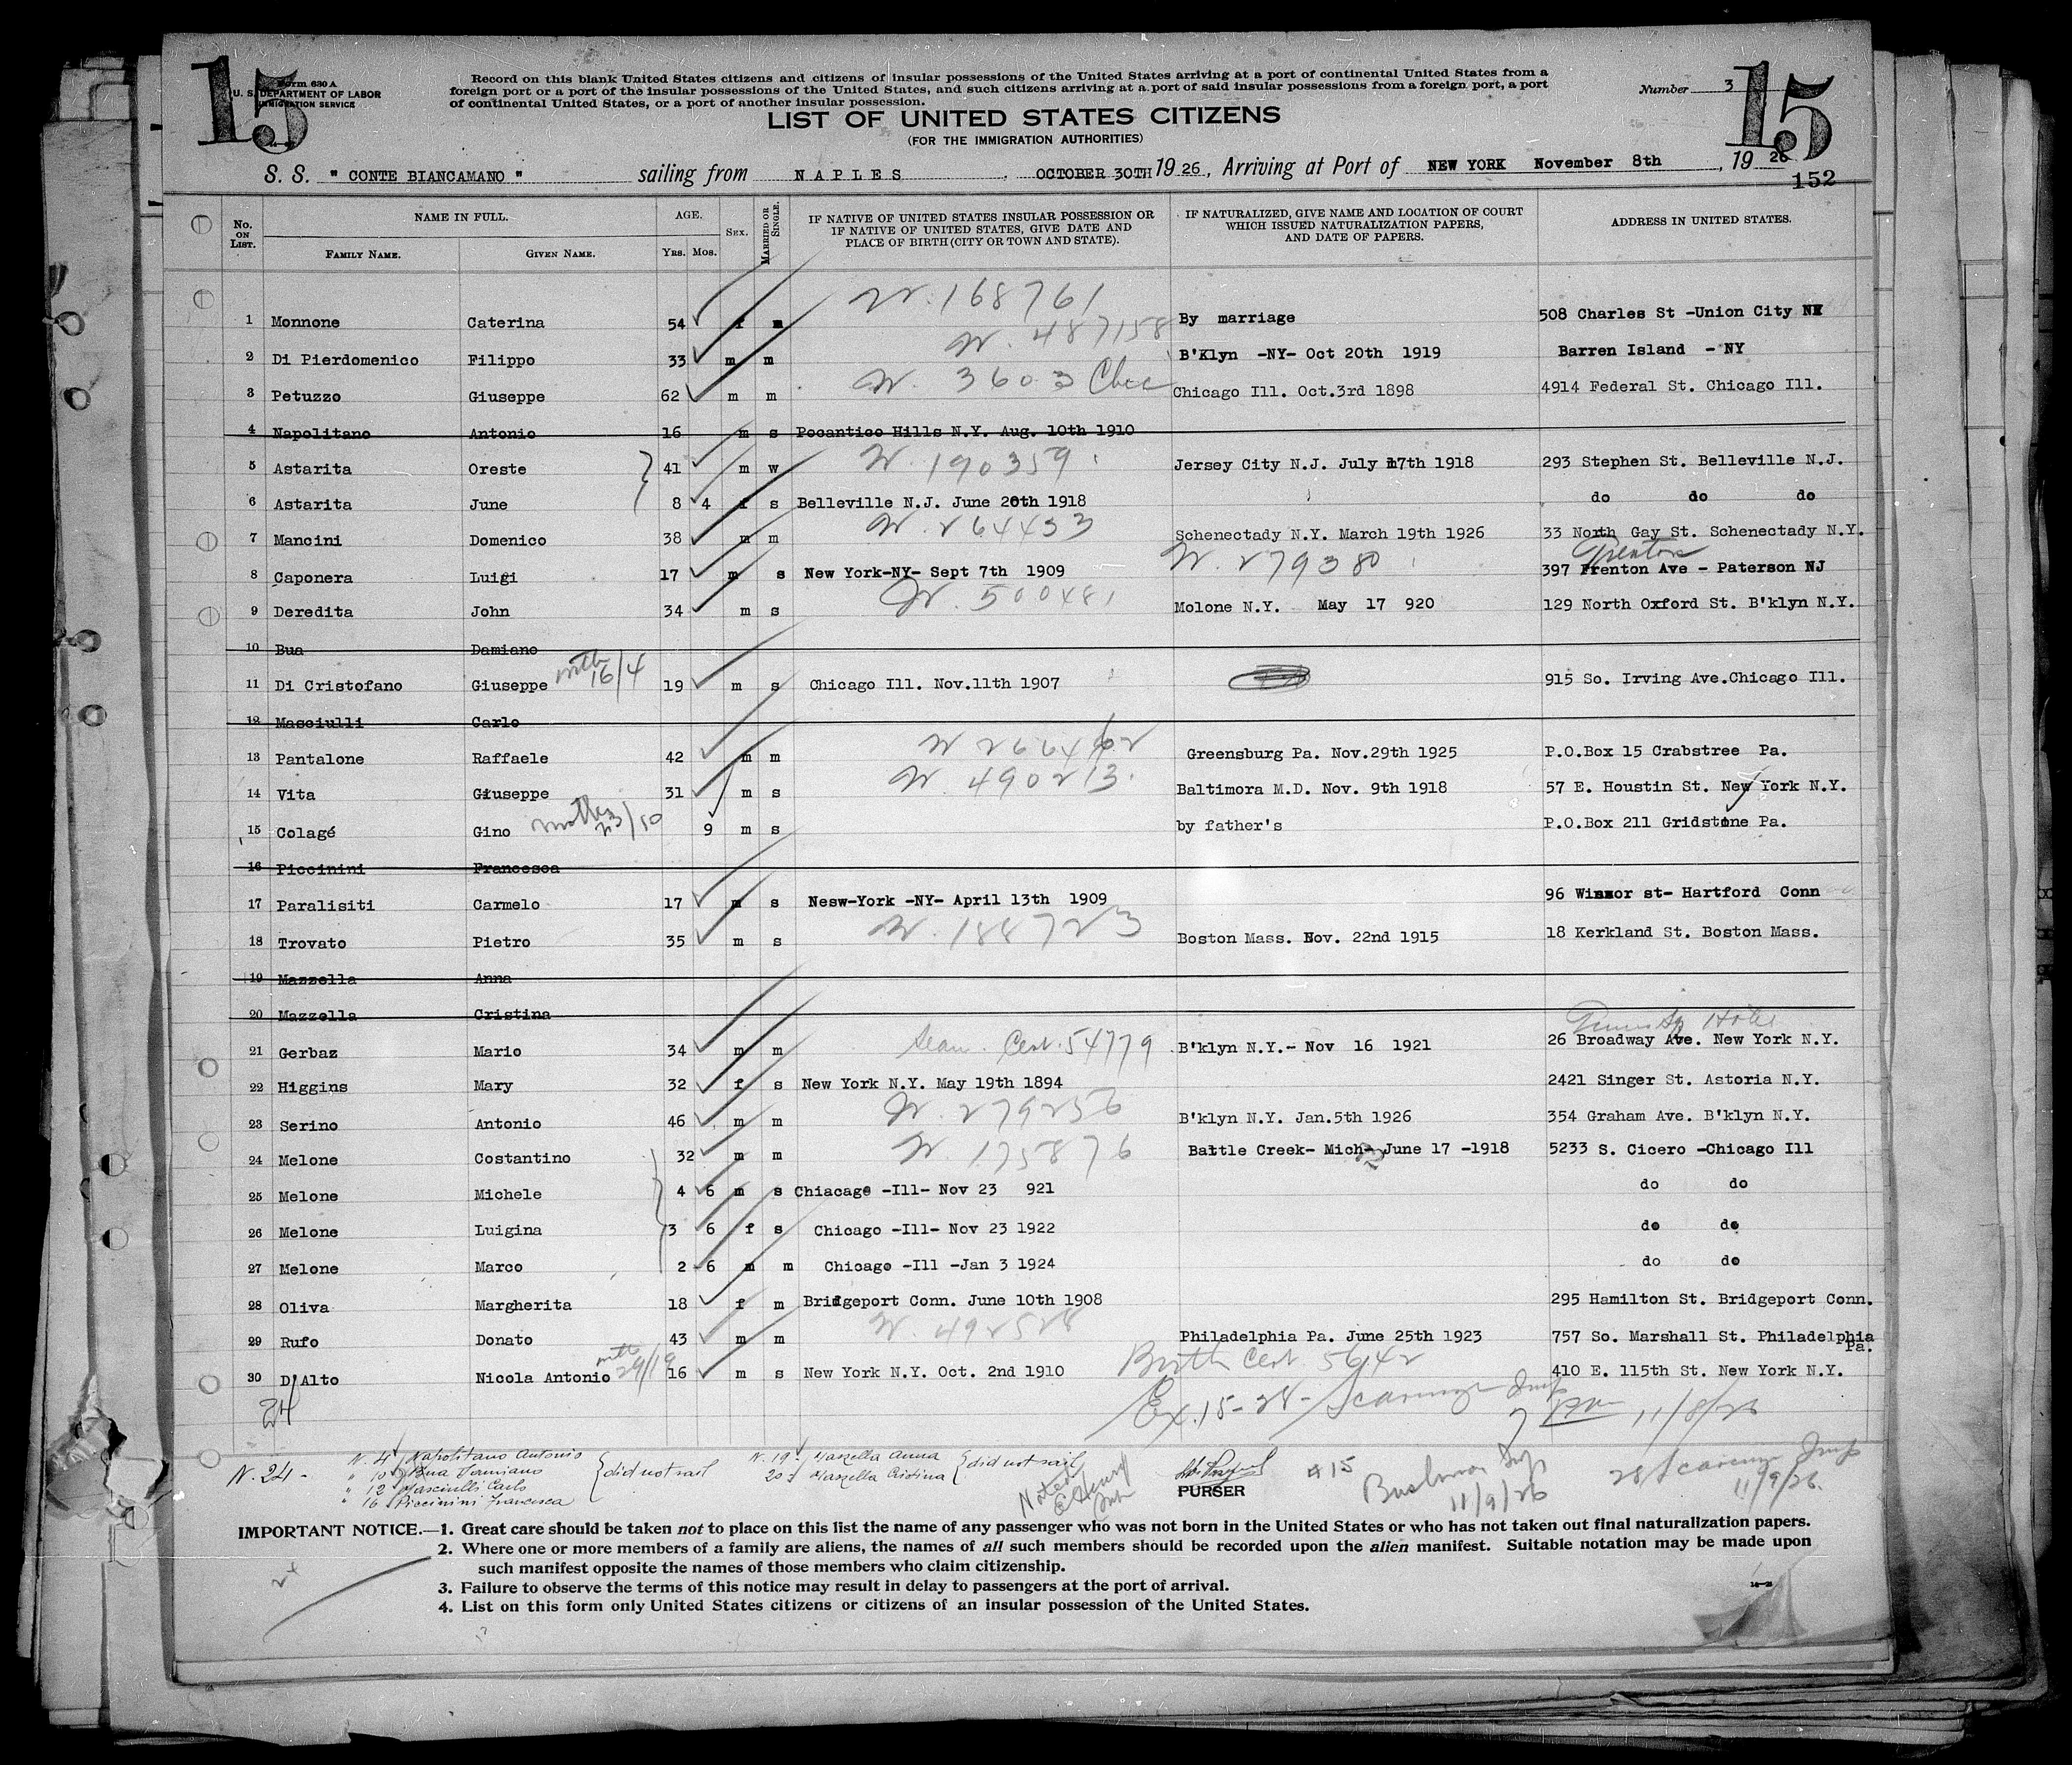 15
Form 630 A
U. S. DEPARTMENT OF LABOR
IMMIGRATION SERVICE
Record on this blank United States citizens and citizens of insular possessions of the United States arriving at a port of continental United States from a
foreign port or a port of the insular possessions of the United States, and such citizens arriving at a port of said insular possessions from a foreign port, a port
of continental United States, or a port of another insular possession.
Number 3
15
LIST OF UNITED STATES CITIZENS
(FOR THE IMMIGRATION AUTHORITIES)
S. S. " CONTE BIANCAMANO " sailing from NAPLES , OCTOBER 30TH 1926, Arriving at Port of NEW YORK November 8th , 1926
152
No. ON LIST. NAME IN FULL. FAMILY NAME. GIVEN NAME. AGE. YRS. MOS. SEX. MARRIED OR SINGLE. IF NATIVE OF UNITED STATES INSULAR POSSESSION OR IF NATIVE OF UNITED STATES, GIVE DATE AND PLACE OF BIRTH (CITY OR TOWN AND STATE). IF NATURALIZED, GIVE NAME AND LOCATION OF COURT WHICH ISSUED NATURALIZATION PAPERS, AND DATE OF PAPERS. ADDRESS IN UNITED STATES.
N. 168761
1 Monnone Caterina 54 f m By marriage 508 Charles St -Union City
N. 487158
2 Di Pierdomenico Filippo 33 m m B'Klyn -NY- Oct 20th 1919 Barren Island - NY
N. 3603 Chic
3 Petuzzo Giuseppe 62 m m Chicago Ill. Oct.3rd 1898 4914 Federal St. Chicago Ill.
4 Napolitano Antonio 16 m s Pocantico Hills N.Y. Aug. 10th 1910
5 Astarita Oreste 41 m w N. 190359 Jersey City N.J. July 17th 1918 293 Stephen St. Belleville N.J.
6 Astarita June 8 4 f s Belleville N.J. June 20th 1918 do do do
N. 264453
7 Mancini Domenico 38 m m Schenectady N.Y. March 19th 1926 33 North Gay St. Schenectady N.Y.
N. 279380 Trenton
8 Caponera Luigi 17 m s New York-NY- Sept 7th 1909 397 Frenton Ave - Paterson NJ
N. 500481
9 Deredita John 34 m s Molone N.Y. May 17 920 129 North Oxford St. B'klyn N.Y.
10 Bua Damiano
16/4
11 Di Cristofano Giuseppe 19 m s Chicago Ill. Nov.11th 1907 915 So. Irving Ave.Chicago Ill.
12 Masciulli Carlo
13 Pantalone Raffaele 42 m m Greensburg Pa. Nov.29th 1925 P.O.Box 15 Crabstree Pa.
N. 490213
14 Vita Giuseppe 31 m s Baltimora M.D. Nov. 9th 1918 57 E. Houstin St. New York N.Y.
mother 23/50
15 Colagé Gino 9 m s by father's P.O.Box 211 Gridstone Pa.
16 Piccinini Francesca
17 Paralisiti Carmelo 17 m s Nesw-York -NY- April 13th 1909 96 Winsor st- Hartford Conn
N. 188723
18 Trovato Pietro 35 m s Boston Mass. Nov. 22nd 1915 18 Kerkland St. Boston Mass.
19 Mazzella Anna
20 Mazzella Cristina
21 Gerbaz Mario 34 m m Seam. Cert. 54779 B'klyn N.Y.- Nov 16 1921 26 Broadway Ave. New York N.Y.
22 Higgins Mary 32 f s New York N.Y. May 19th 1894 2421 Singer St. Astoria N.Y.
N. 279256
23 Serino Antonio 46 m m B'klyn N.Y. Jan.5th 1926 354 Graham Ave. B'klyn N.Y.
N. 175876
24 Melone Costantino 32 m m Battle Creek- Mich- June 17 -1918 5233 S. Cicero -Chicago Ill
25 Melone Michele 4 6 m s Chiacago -Ill- Nov 23 921 do do
26 Melone Luigina 3 6 f s Chicago -Ill- Nov 23 1922 do do
27 Melone Marco 2 6 m m Chicago -Ill -Jan 3 1924 do do
28 Oliva Margherita 18 f m Bridgeport Conn. June 10th 1908 295 Hamilton St. Bridgeport Conn.
N. 492528
29 Rufo Donato 43 m m Philadelphia Pa. June 25th 1923 757 So. Marshall St. Philadelphia Pa.
29/19 Birth Cert. 5642
30 D'Alto Nicola Antonio 16 m s New York N.Y. Oct. 2nd 1910 410 E. 115th St. New York N.Y.
24
Ex. 15-28- Scarunge Insp 11/8/26
N. 24 -
N. 4 Napolitano Antonio
" 10 Bua Damiano
" 12 Masciulli Carlo
" 16 Piccinini Francesca
did not sail
N. 19 Mazzella Anna
20 Mazzella Cristina
did not sail
Noted
PURSER
#15
Insp
11/9/26
28 Insp
11/9/26.
IMPORTANT NOTICE.—1. Great care should be taken not to place on this list the name of any passenger who was not born in the United States or who has not taken out final naturalization papers.
2. Where one or more members of a family are aliens, the names of all such members should be recorded upon the alien manifest. Suitable notation may be made upon
such manifest opposite the names of those members who claim citizenship.
3. Failure to observe the terms of this notice may result in delay to passengers at the port of arrival.
4. List on this form only United States citizens or citizens of an insular possession of the United States.